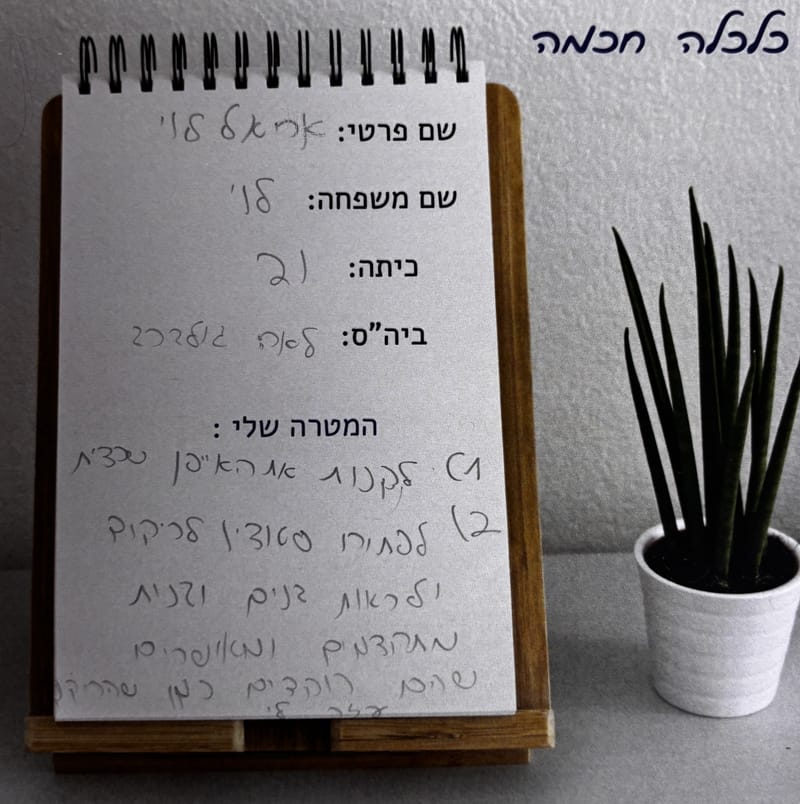 כלכלה חכמה
שם פרטי: אריאל לוי
שם משפחה: לוי
כיתה: ו2
ביה"ס: לאה גולדברג
המטרה שלי :
1) לקנות את האייפן
2) לפתוח סטודיו לריקוד
ולראות בנים ובנות
מתקדמים ומאושרים
שהם רוקדים כמו שהריקוד
עזר לי